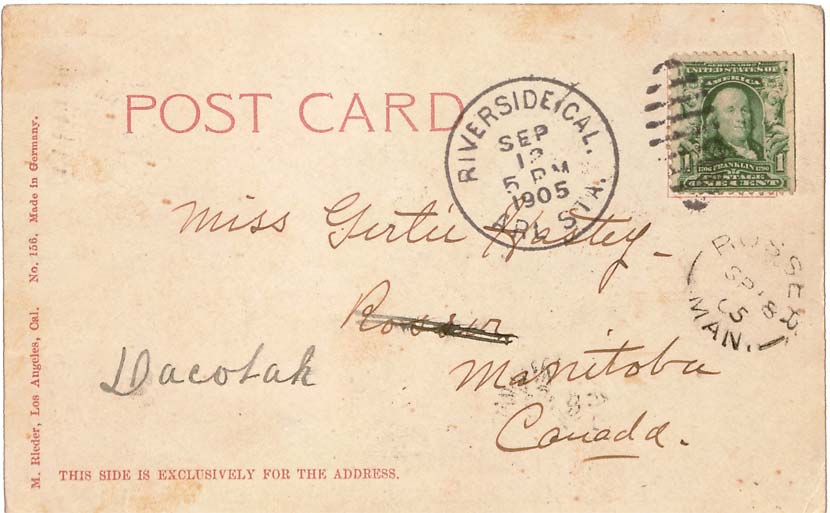 POST CARD
RIVERSIDE, CAL.
SEP
5 PM
1905
STA.
SERIES 1902
UNITED STATES OF
AMERICA
1706 FRANKLIN 1790
1 POSTAGE 1
ONE CENT
Miss Gertie Hastey
Rosser
Manitoba
Canada.
Dacotah
ROSSER
SP 18
05
MAN.
M. Rieder, Los Angeles, Cal. No. 156. Made in Germany.
THIS SIDE IS EXCLUSIVELY FOR THE ADDRESS.